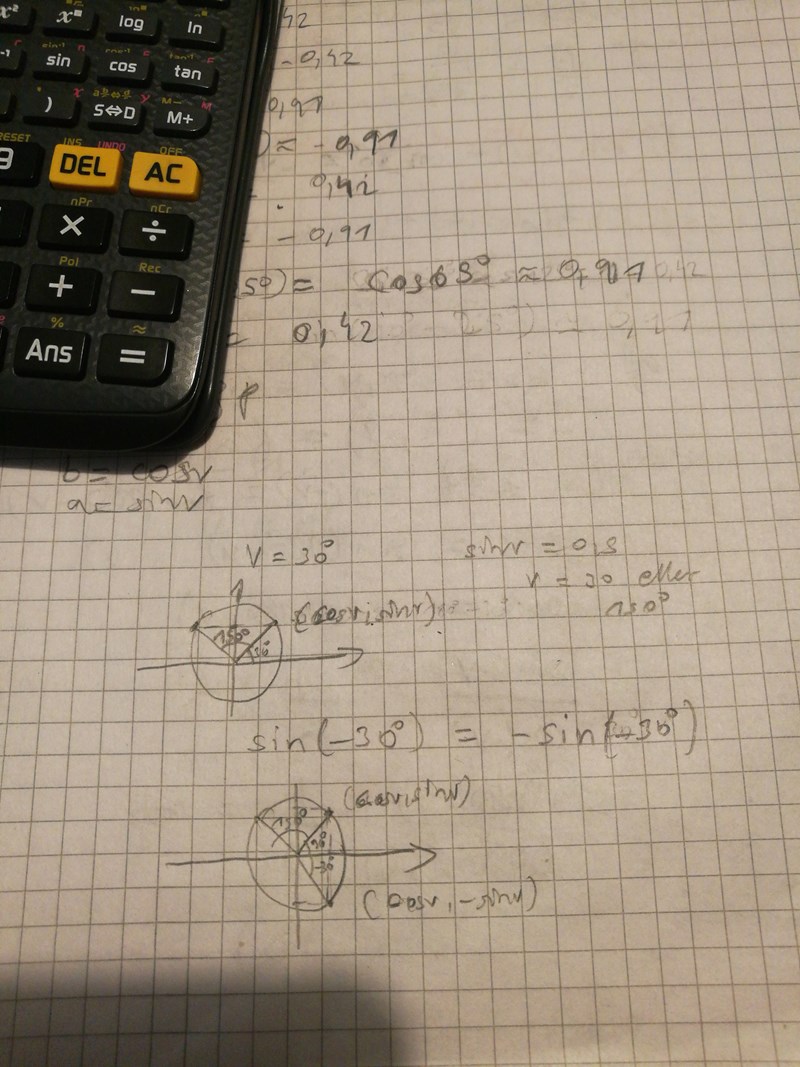 x² x■ log ln
sin cos tan
) S⇔D M+
RESET INS UNDO OFF
9 DEL AC
nPr nCr
× ÷
Pol Rec
+ −
% ≈
Ans =
42
-0,42
0,91
)≈ -0,91
0,42
= -0,91
5°)= cos65° ≈ 0,91
= 0,42
b = cosv
a = sinv
V = 30°
sinv = 0,5
v = 30 eller
150°
(cosv, sinv)
150° 30°
sin(-30°) = -sin(+30°)
(cosv, sinv)
150° 30°
-30°
(cosv, -sinv)